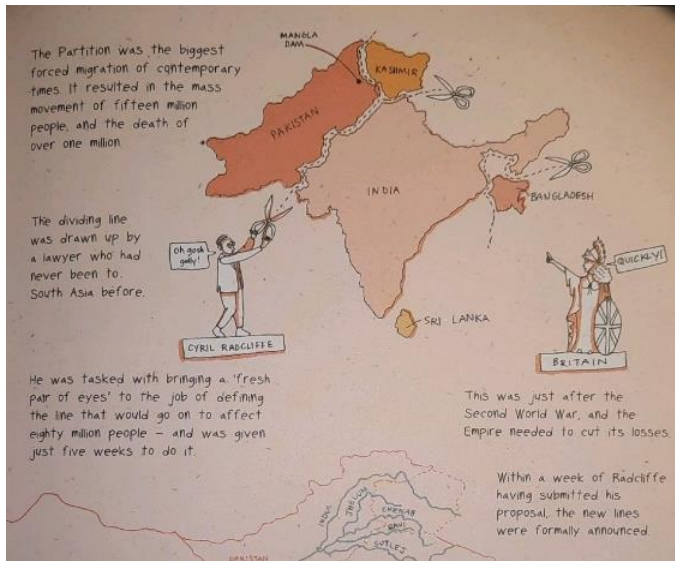 The Partition was the biggest
forced migration of contemporary
times. It resulted in the mass
movement of fifteen million
people, and the death of
over one million.
MANGLA
DAM
KASHMIR
PAKISTAN
INDIA
BANGLADESH
SRI LANKA
The dividing line
was drawn up by
a lawyer who had
never been to
South Asia before.
Oh gosh
golly!
CYRIL RADCLIFFE
QUICKLY!
BRITAIN
He was tasked with bringing a 'fresh
pair of eyes' to the job of defining
the line that would go on to affect
eighty million people – and was given
just five weeks to do it.
This was just after the
Second World War, and the
Empire needed to cut its losses.
Within a week of Radcliffe
having submitted his
proposal, the new lines
were formally announced.
INDUS
JHELUM
CHENAB
RAVI
SUTLEJ
PAKISTAN